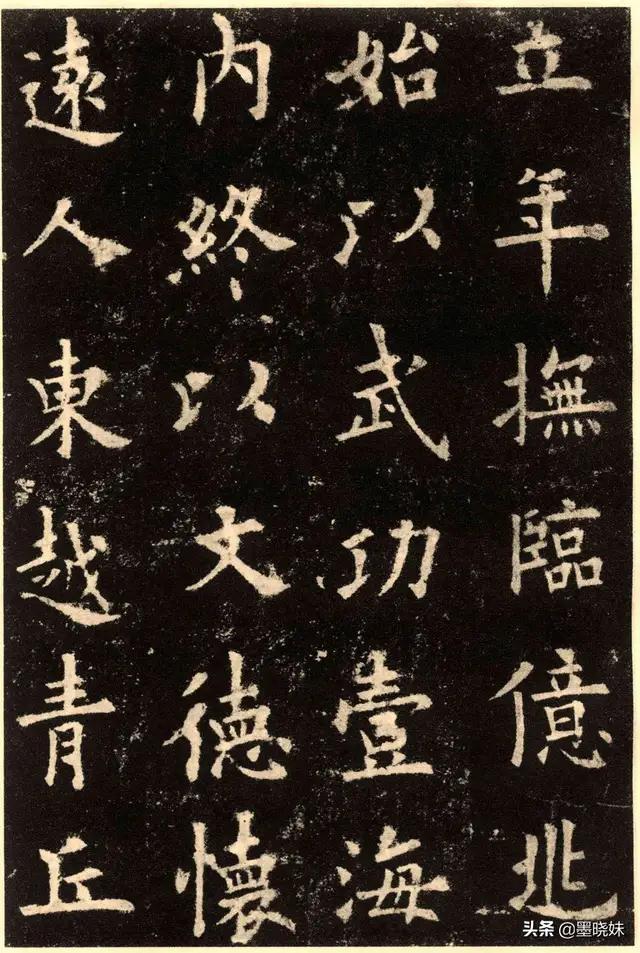 立年撫臨億兆
始以武功壹海
内終以文德懷
遠人東越青丘
头条 @墨晓妹